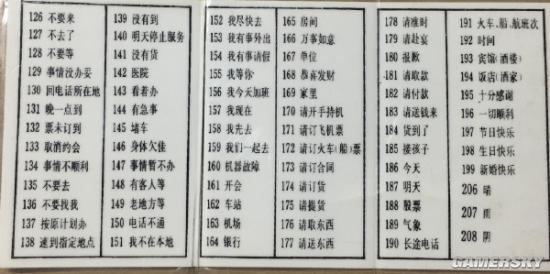 126 不要来
127 不去了
128 不要等
129 事情没办妥
130 回电话所在地
131 晚一点到
132 票未订到
133 取消约会
134 事情不顺利
135 不要去
136 不要找我
137 按原计划办
138 速到指定地点
139 没有到
140 明天停止服务
141 没有货
142 医院
143 看着办
144 有急事
145 堵车
146 身体欠佳
147 事情暂不办
148 有客人等
149 老地方等
150 电话不通
151 我不在本地
152 我尽快去
153 我有事外出
154 我有事请假
155 我等你
156 我今天加班
157 我现在
158 我先去
159 我们一起去
160 机器故障
161 开会
162 车站
163 机场
164 银行
165 房间
166 万事如意
167 单位
168 恭喜发财
169 家里
170 请开手持机
171 请订飞机票
172 请订火车(船)票
173 请订合同
174 请订货
175 请提货
176 请取东西
177 请送东西
178 请准时
179 请赴宴
180 抱歉
181 请取款
182 请付款
183 请送钱来
184 货到了
185 接孩子
186 今天
187 明天
188 股票
189 气象
190 长途电话
191 火车、船、航班次
192 时间
193 宾馆(酒楼)
194 饭店(酒家)
195 十分感谢
196 一切顺利
197 节日快乐
198 生日快乐
199 新婚快乐
206 晴
207 雨
208 阴
GAMERSKY